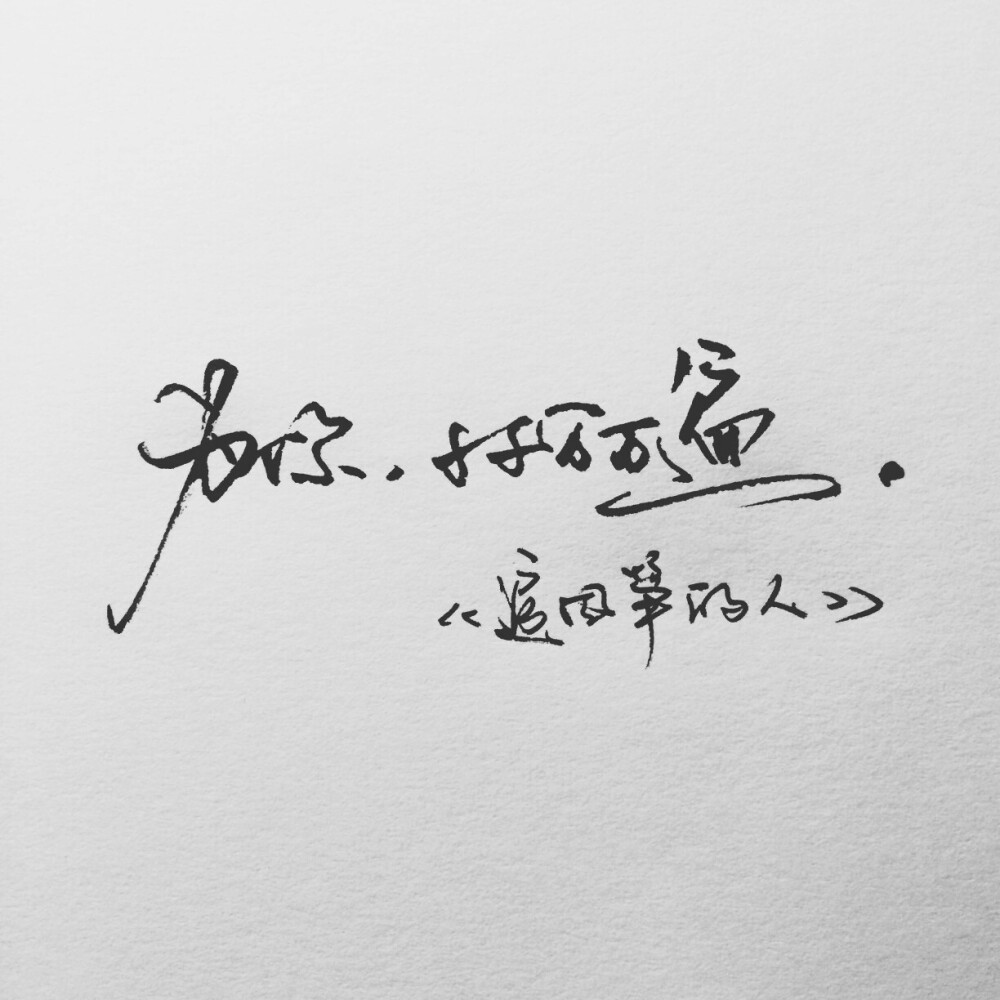 为你，千千万万遍.
《追风筝的人》